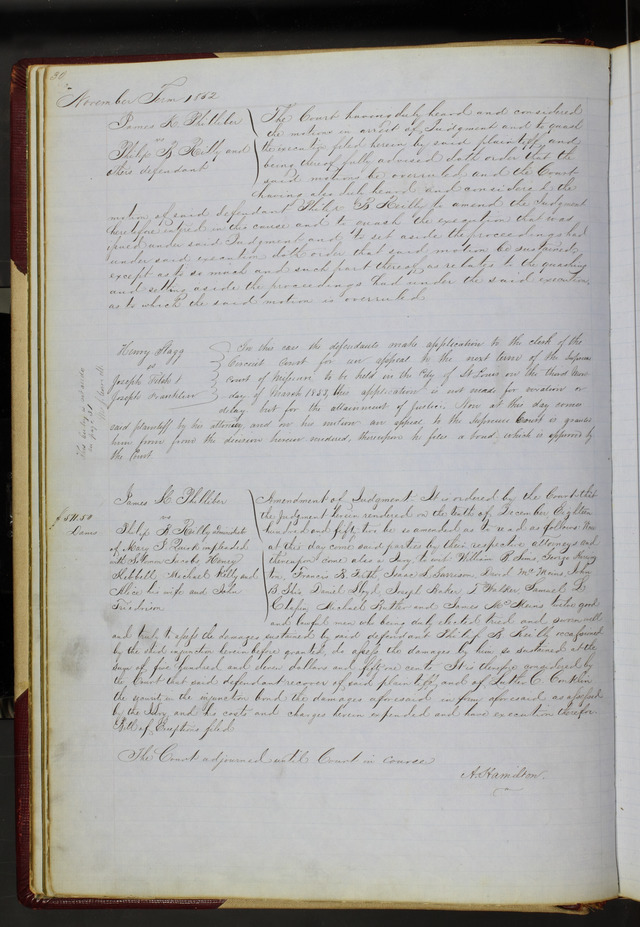 30
November Term 1852
James K. Philleber
vs
Philip B. Reilly and
others defendant
The Court having duly heard and considered
the motions in arrest of Judgment and to quash
the execution filed herein by said plaintiff and
being thereof fully advised doth order that the
said motions be overruled, and the Court
having also duly heard and considered the
motion of said defendant Philip B. Reilly to amend the Judgment
heretofore entered in this cause and to quash the execution that was
issued under said Judgment and to set aside the proceedings had
under said execution doth order that said motion be sustained
except as to so much and such part thereof as relates to the quashing
and setting aside the proceedings had under the said execution
as to which the said motion is overruled
Henry Stagg
vs
Joseph
Joseph Franklin
In this case the defendants make application to the clerk of the
Circuit Court for an appeal to the next term of the Supreme
court of Missouri to be held in the City of St Louis on the third
day of March 1853, this application is not made for vexation or
delay but for the attainment of Justice. Now at this day comes
said plaintiff by his attorney, and on his motion an appeal to the Supreme Court is granted
him from the decision herein rendered, therefore he files a bond, which is approved by
the Court
James K. Philleber
vs
Philip B. Reilly administrator
of Mary S. impleaded
with Solomon Jacobs Henry
Michael Kelly and
Alice his wife and John
$511.50
Dams
Amendment of Judgment. It is ordered by the Court that
the Judgment herein rendered on the tenth of December Eighteen
hundred and fifty two be so amended as to read as follows: Now
at this day come said parties by their respective attorneys and
thereupon come also a Jury, to wit William B. Sims, George
Francis B. Isaac L. Garrison, David McManus, John
B. Daniel Floyd, Joseph Baker, Walker, Samuel D.
Michael Butler and James McManus twelve good
and lawful men who being duly elected tried and sworn well
and truly to assess the damages sustained by said defendant Philip B. Reilly occasioned
by the said injunction herein before granted, do assess the damages by him so sustained at the
sum of five hundred and eleven dollars and fifty one cents. It is therefore considered by
the Court that said defendant recover of said plaintiff, and of Luther C. Conklin
the security in the injunction bond the damages aforesaid in form aforesaid as assessed
by the Jury and his costs and charges herein expended and have execution therefor
Bill of Exceptions filed
The Court adjourned until Court in course
A. Hamilton.